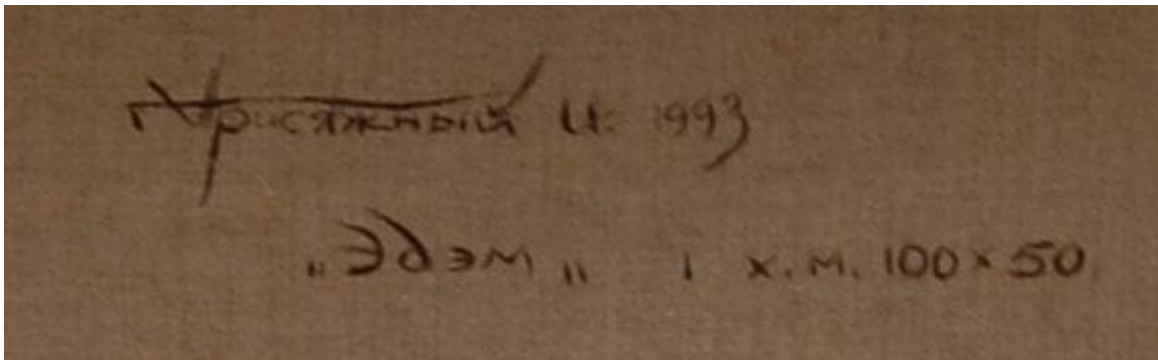 Присяжный И. 1993
„Эдэм„ , х.м. 100 х 50